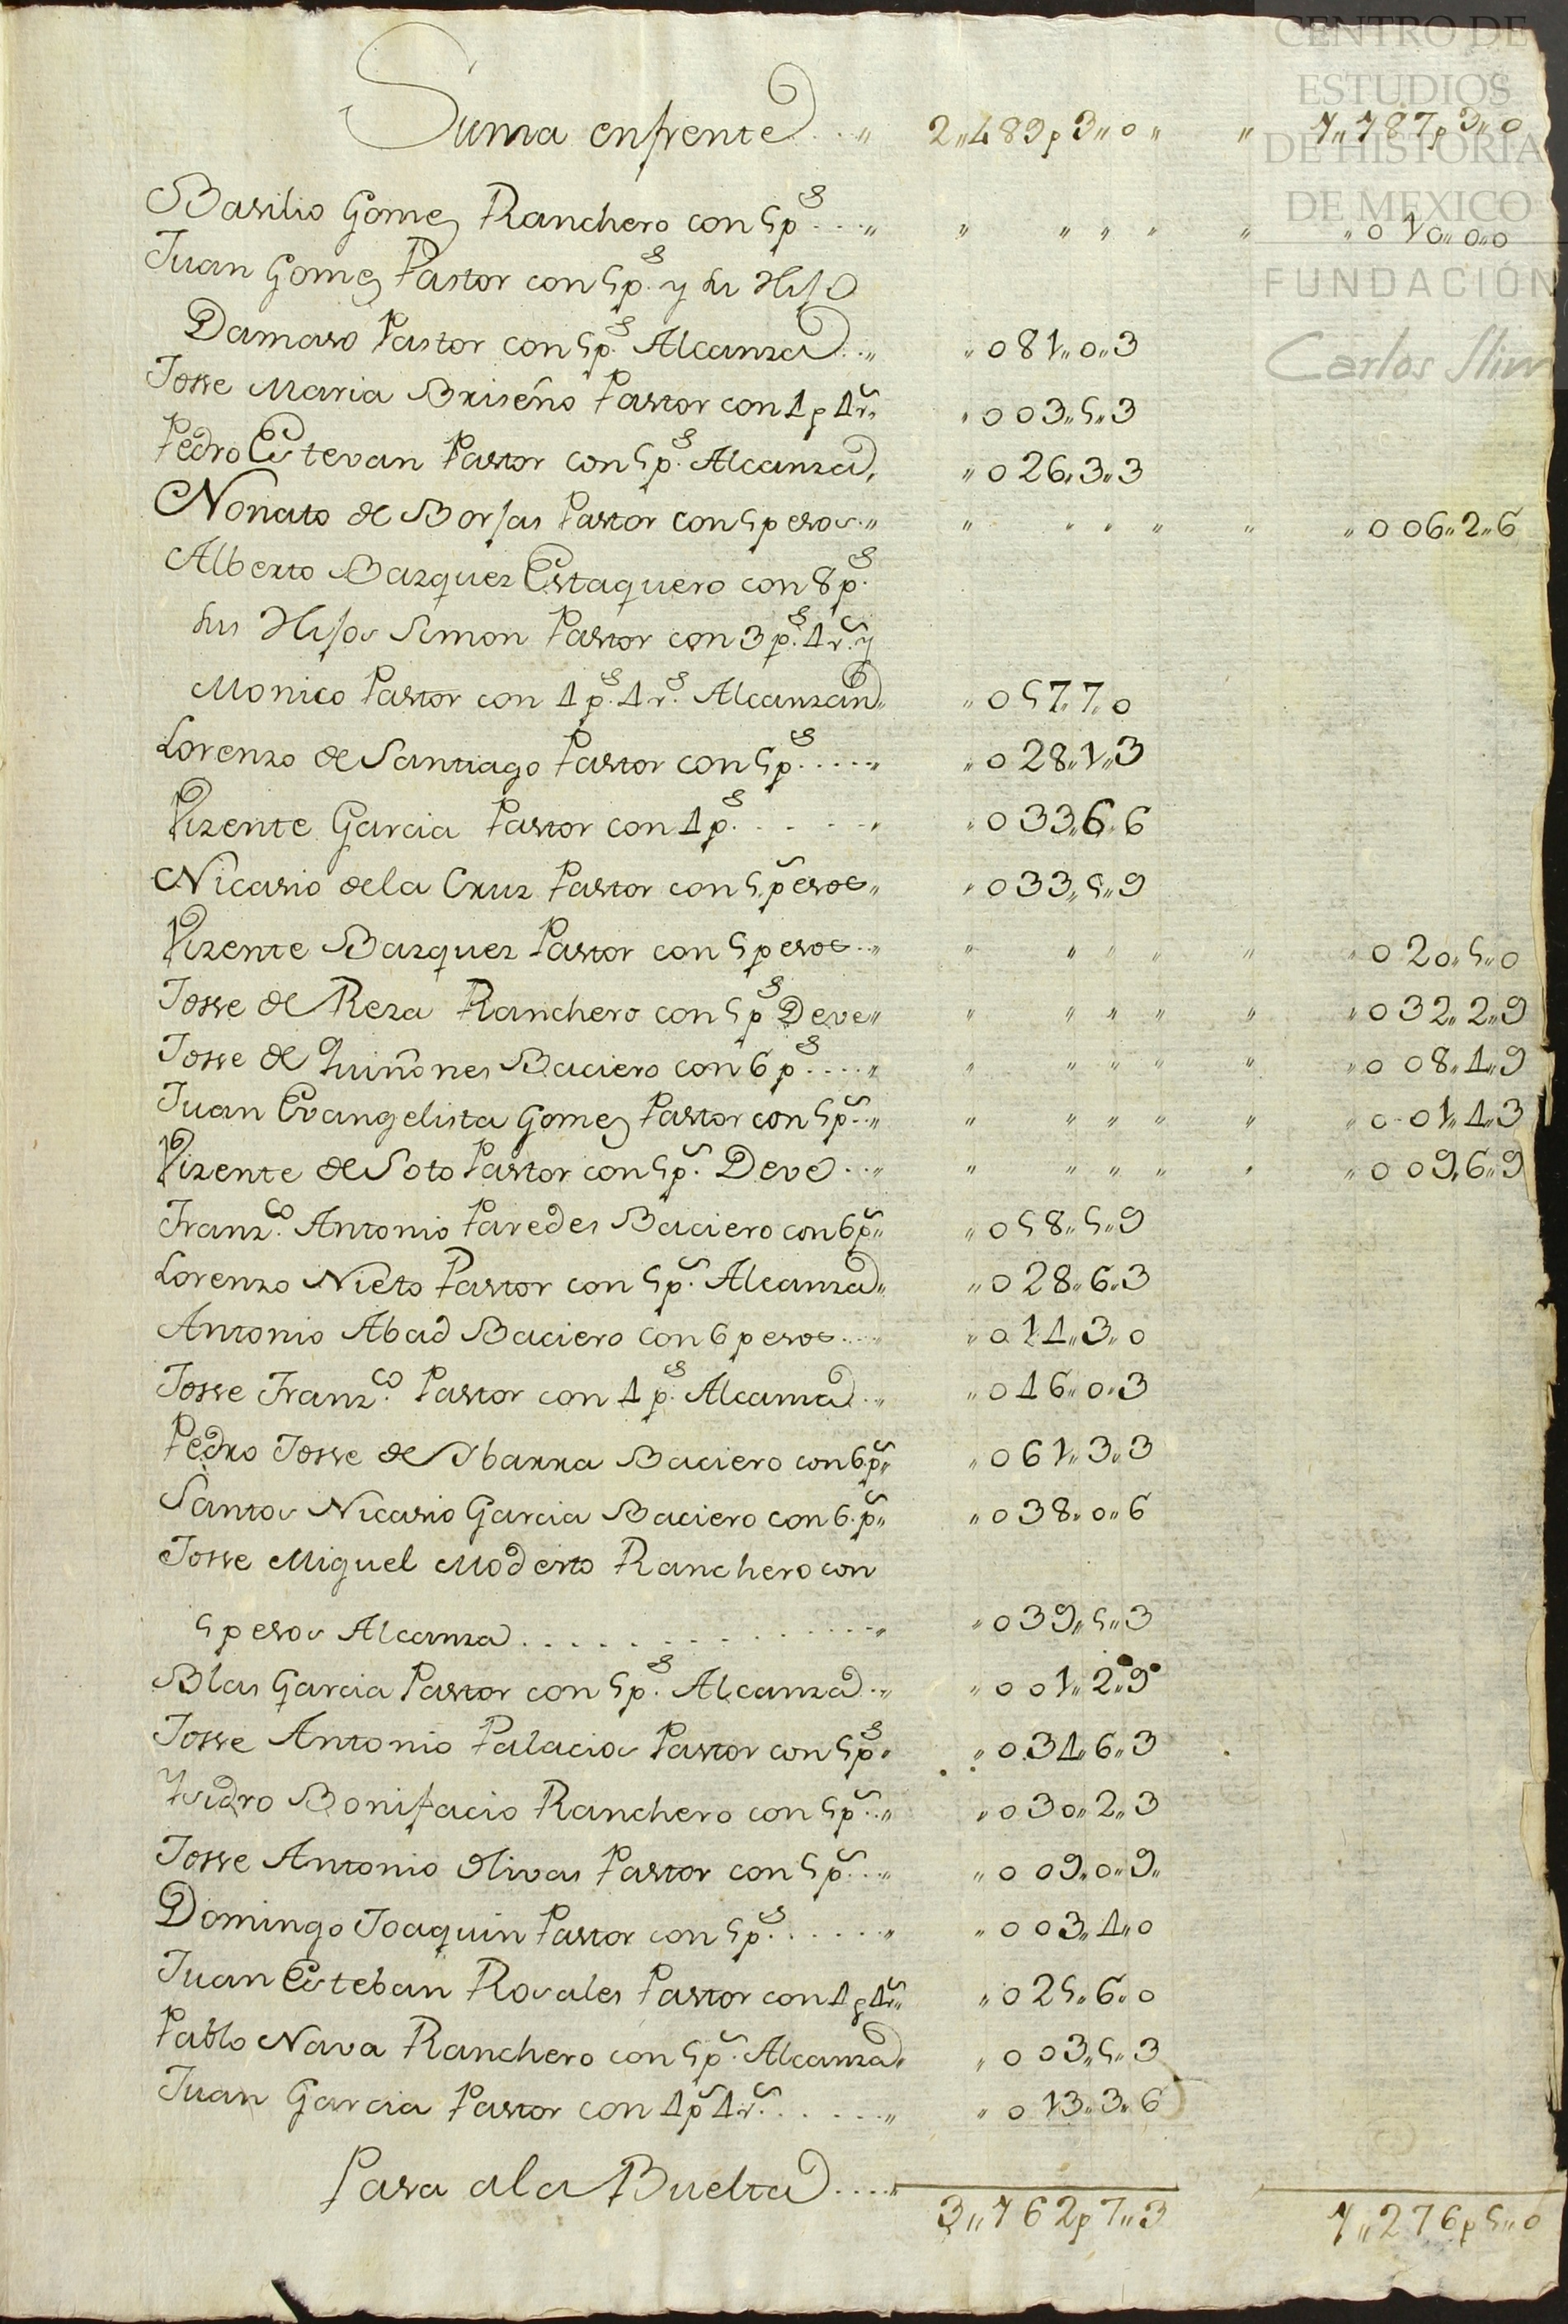 Suma enfrente ...,, 2,,489p3,,0,, ,, 1,,187p3,,0
Basilio Gomez Ranchero con 5p.s ...,, ,, ,, ,, ,, ,, ,,010,,0,,0
Juan Gomez Pastor con 5p.s y su Hijo
Damaso Pastor con 5p.s Alcanza ..,, ,,081,,0,,3
Josse Maria Briseño Pastor con 4p 4r.s ,,003,,5,,3
Pedro Estevan Pastor con 5p.s Alcanza ,,026,,3,,3
Nonato de Borjas Pastor con 5 pesos ..,, ,, ,, ,, ,, ,, ,,006,,2,,6
Alberto Bazquez Estaquero con 8p.s
sus Hijos Simon Pastor con 3p.s 4r.s y
Monico Pastor con 4p.s 4r.s Alcanzan ,,057,,7,,0
Lorenzo de Santiago Pastor con 5p.s ....,, ,,028,,1,,3
Vizente Garcia Pastor con 4p.s ....,, ,,033,,6,,6
Nicasio dela Cruz Pastor con 5 pesos ,, ,,033,,5,,9
Vizente Bazquez Pastor con 5 pesos ..,, ,, ,, ,, ,, ,, ,,020,,5,,0
Josse de Reza Ranchero con 5p.s Deve ,, ,, ,, ,, ,, ,, ,,032,,2,,9
Josse de Quiñones Baciero con 6p.s ....,, ,, ,, ,, ,, ,, ,,008,,4,,9
Juan Evangelista Gomez Pastor con 5p.s ..,, ,, ,, ,, ,, ,, ,,001,,4,,3
Vizente de Soto Pastor con 5p.s Deve ..,, ,, ,, ,, ,, ,, ,,009,,6,,9
Franz.co Antonio Paredes Baciero con 6p.s ,, ,,058,,5,,9
Lorenzo Nieto Pastor con 5p.s Alcanza ,, ,,028,,6,,3
Antonio Abad Baciero con 6 pesos ...,, ,,014,,3,,0
Josse Franz.co Pastor con 4p.s Alcanza ..,, ,,046,,0,,3
Pedro Josse de Ybarra Baciero con 6p.s ,, ,,061,,3,,3
Santos Nicasio Garcia Baciero con 6p.s ,, ,,038,,0,,6
Josse Miguel Modesto Ranchero con
5 pesos Alcanza ...............,, ,,039,,5,,3
Blas Garcia Pastor con 5p.s Alcanza ..,, ,,001,,2,,9
Josse Antonio Palacios Pastor con 5p.s ,, ,,034,,6,,3
Ysidro Bonifacio Ranchero con 5p.s ..,, ,,030,,2,,3
Josse Antonio Olivas Pastor con 5p.s ...,, ,,009,,0,,9,,
Domingo Joaquin Pastor con 5p.s ......,, ,,003,,4,,0
Juan Esteban Rosales Pastor con 4p 4r.s ,, ,,025,,6,,0
Pablo Nava Ranchero con 5p.s Alcanza ,, ,,003,,5,,3
Juan Garcia Pastor con 4p.s 4r.s ......,, ,,013,,3,,6
Pasa ala Buelta ....,, 3,,162p7,,3 1,,276p5,,0
CENTRO DE
ESTUDIOS
DE HISTORIA
DE MEXICO
FUNDACIÓN
Carlos Slim